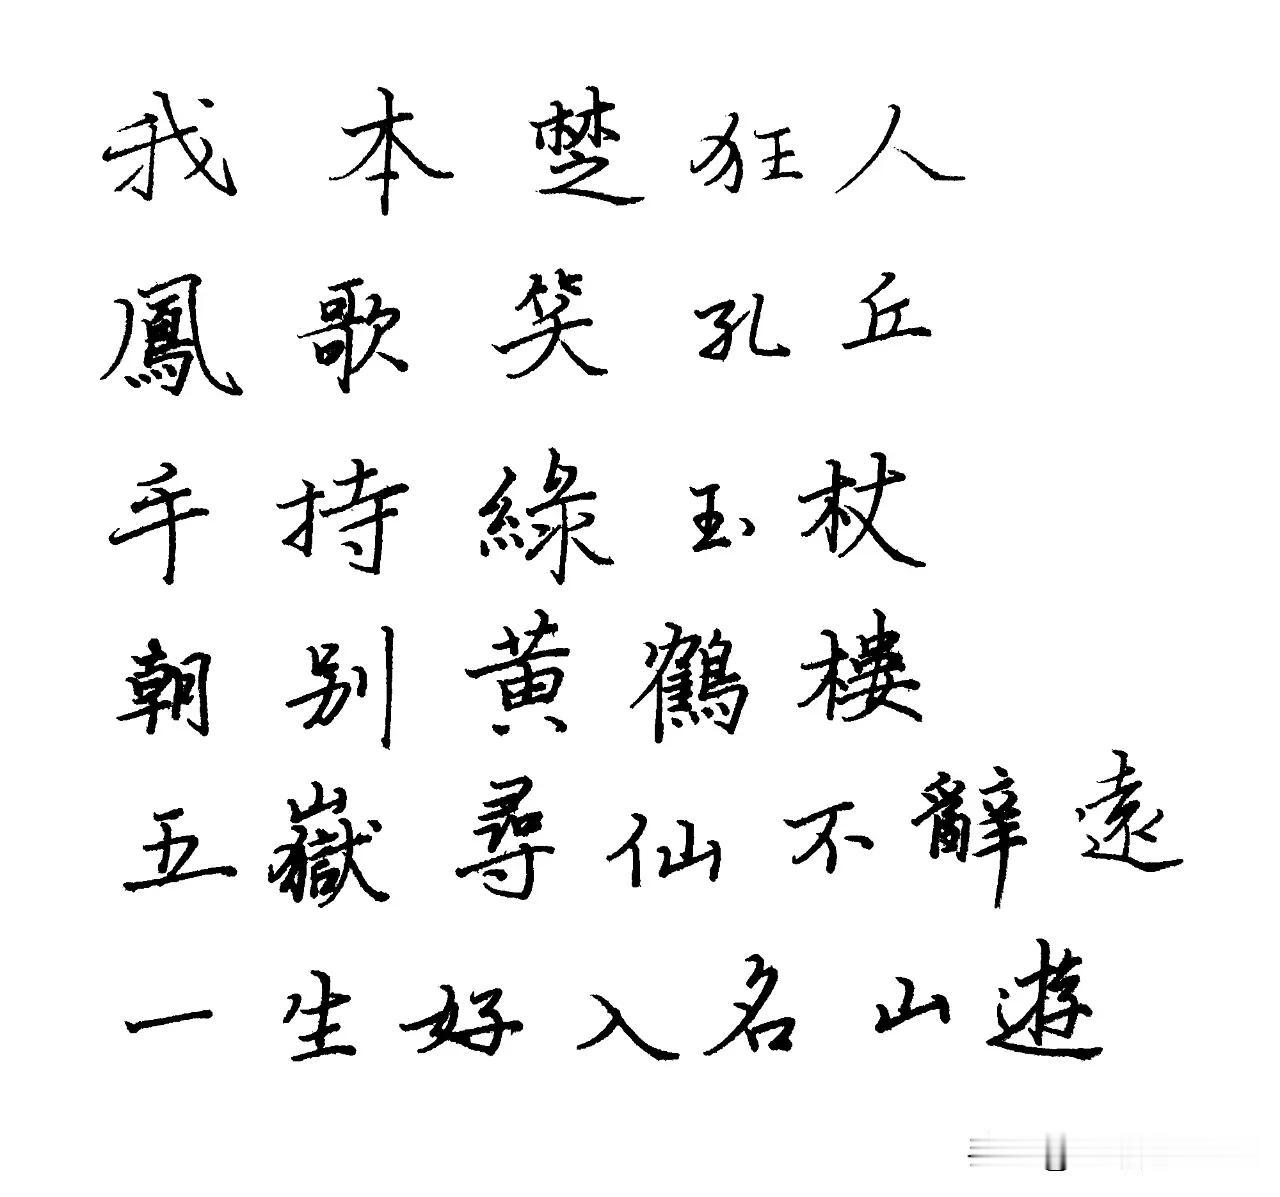 我本楚狂人
鳳歌笑孔丘
手持綠玉杖
朝別黄鶴樓
五嶽尋仙不辭遠
一生好入名山遊